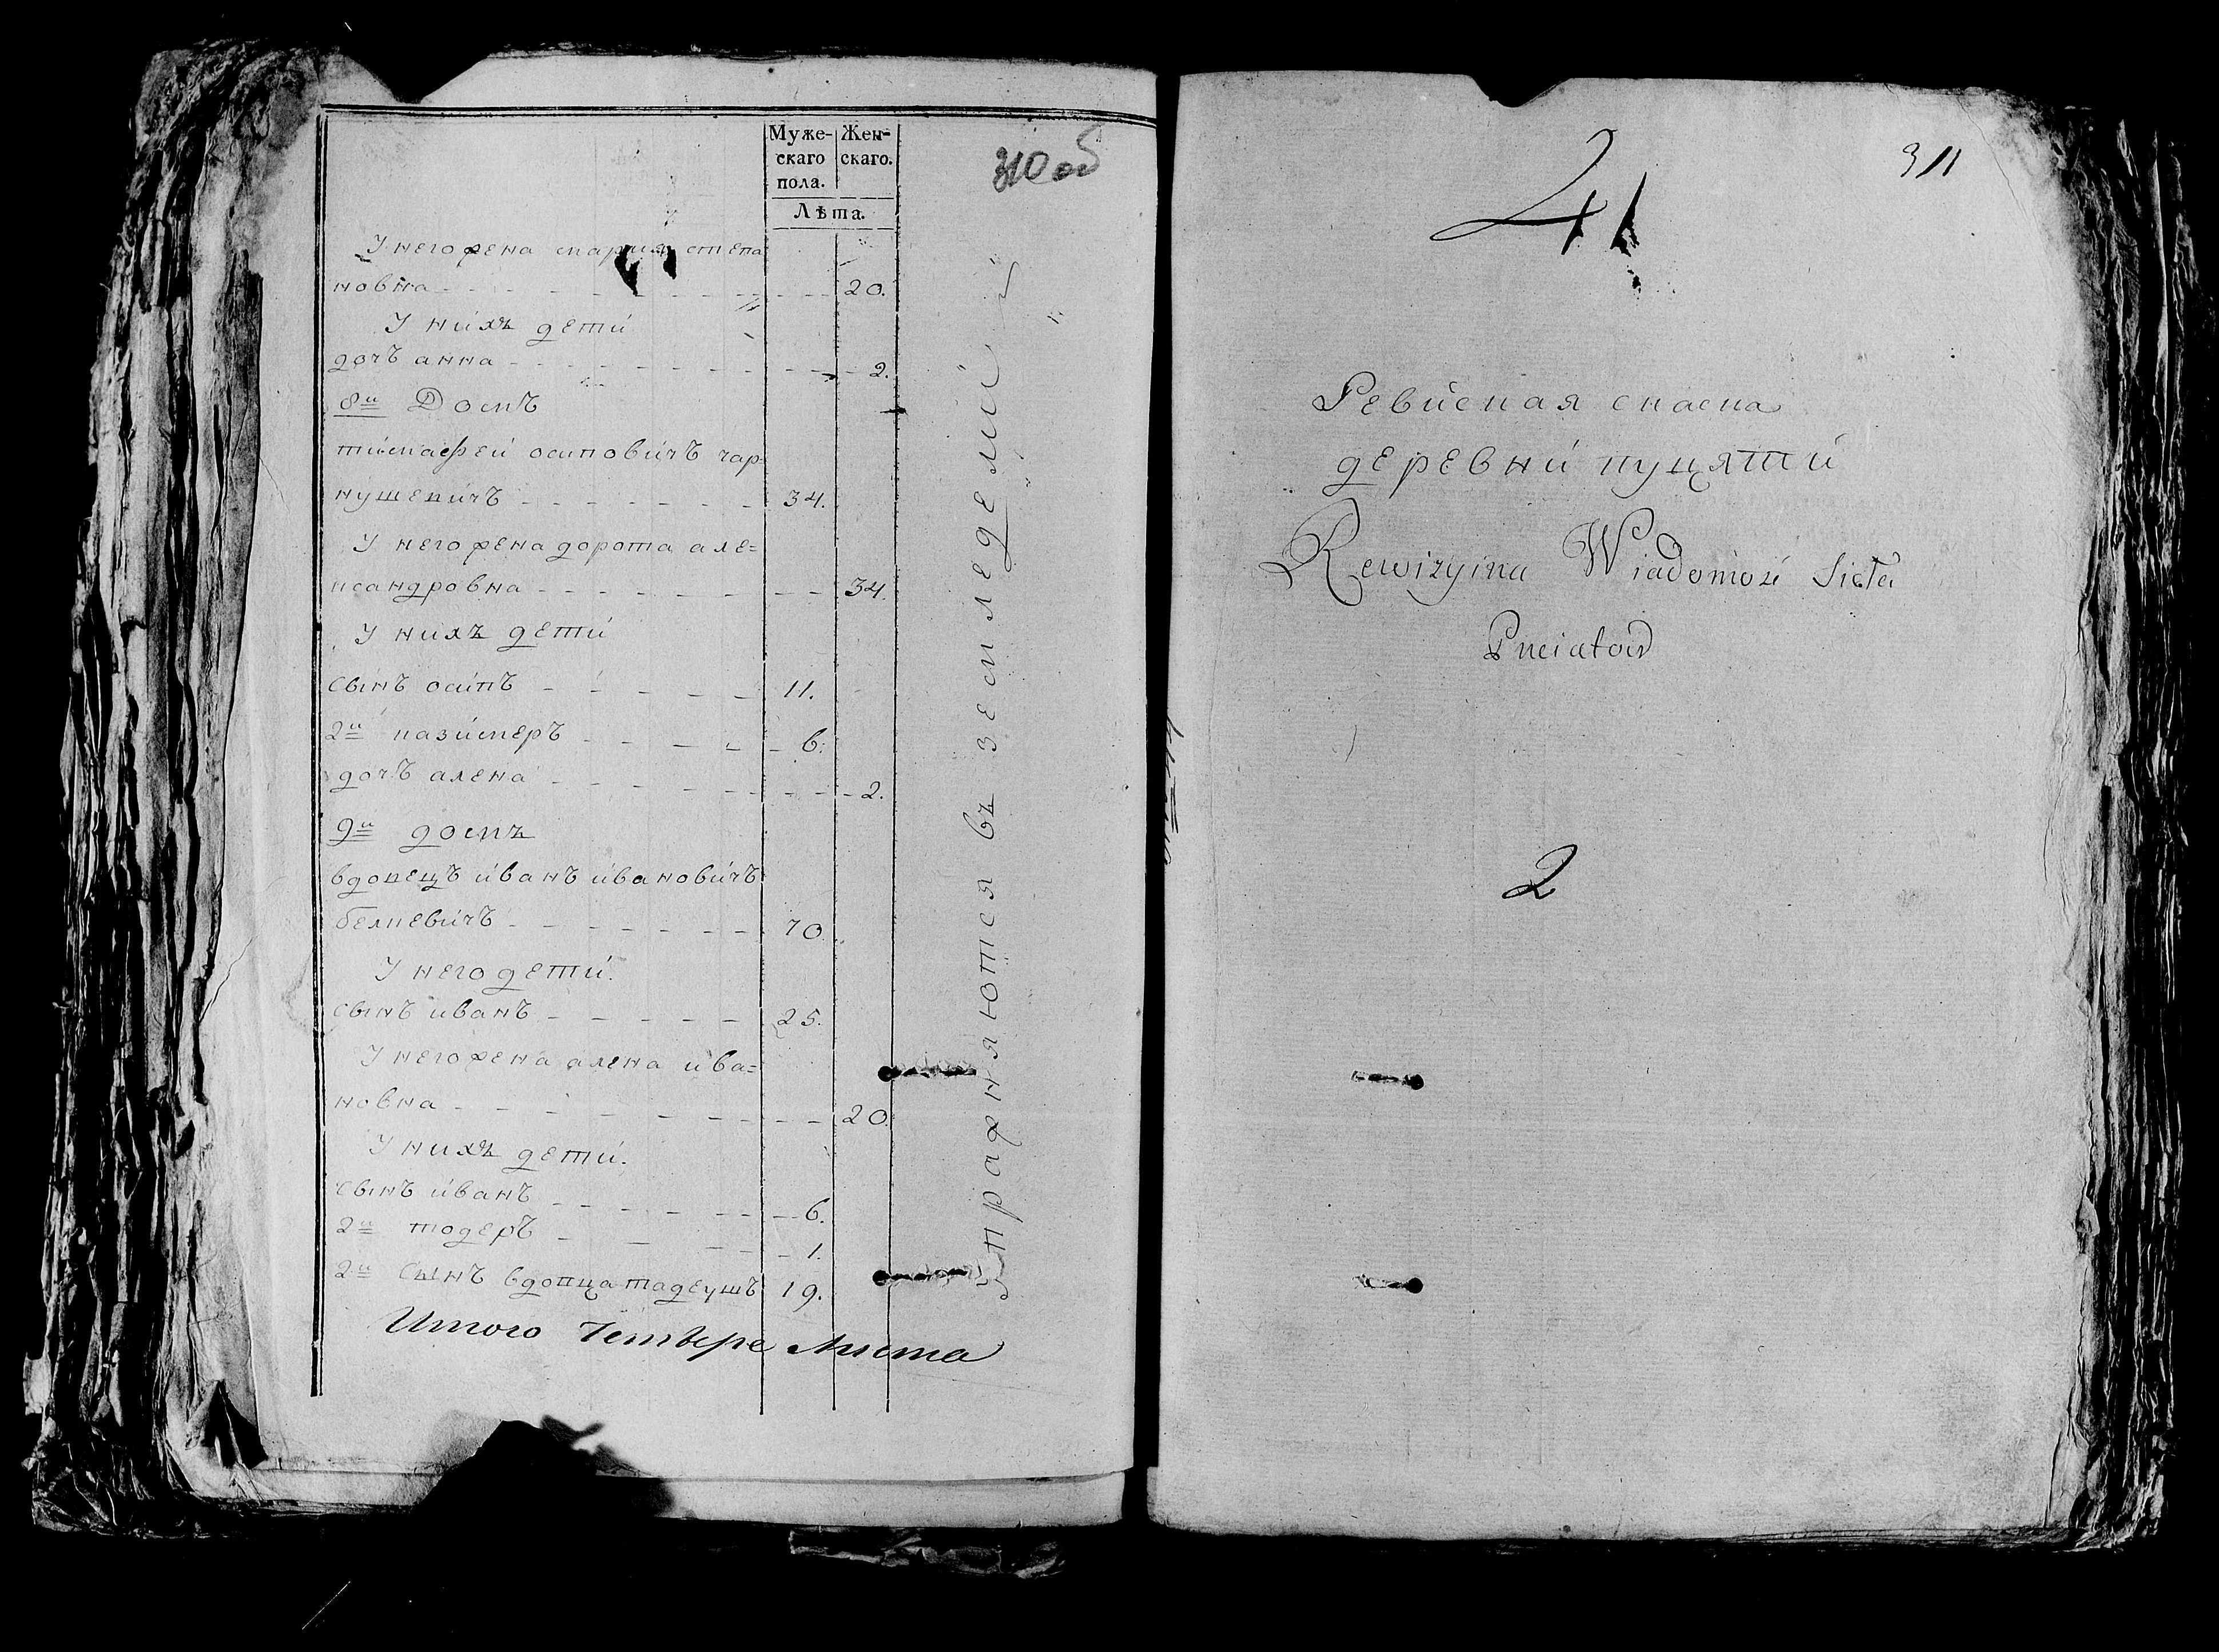 Муже-
скаго
пола.
Жен-
скаго.
Лѣта.
310 об
У него жена мария степа
новна 20.
У нихъ дети
дочъ анна 2.
8й Домъ
тимафей осиповичъ чар-
нушевичъ 34.
У него жена дорота але=
ксандровна 34.
У нихъ дети
сынъ осипъ 11.
2й казимеръ 6.
дочъ алена 2.
9й домъ
вдовецъ иванъ ивановичъ
белкевичъ 70
У него дети.
сынъ иванъ 25.
У него жена алена ива=
новна 20
У нихъ дети.
сынъ иванъ 6.
2й тодеръ 1.
2й сынъ вдовца тадеушъ 19.
Итого Четыре листа
Упражняются въ земледелии
311
41
Ревиская скаска
деревни пуцяти
Rewizyina Wiadomość Sieła
Puciatow
2